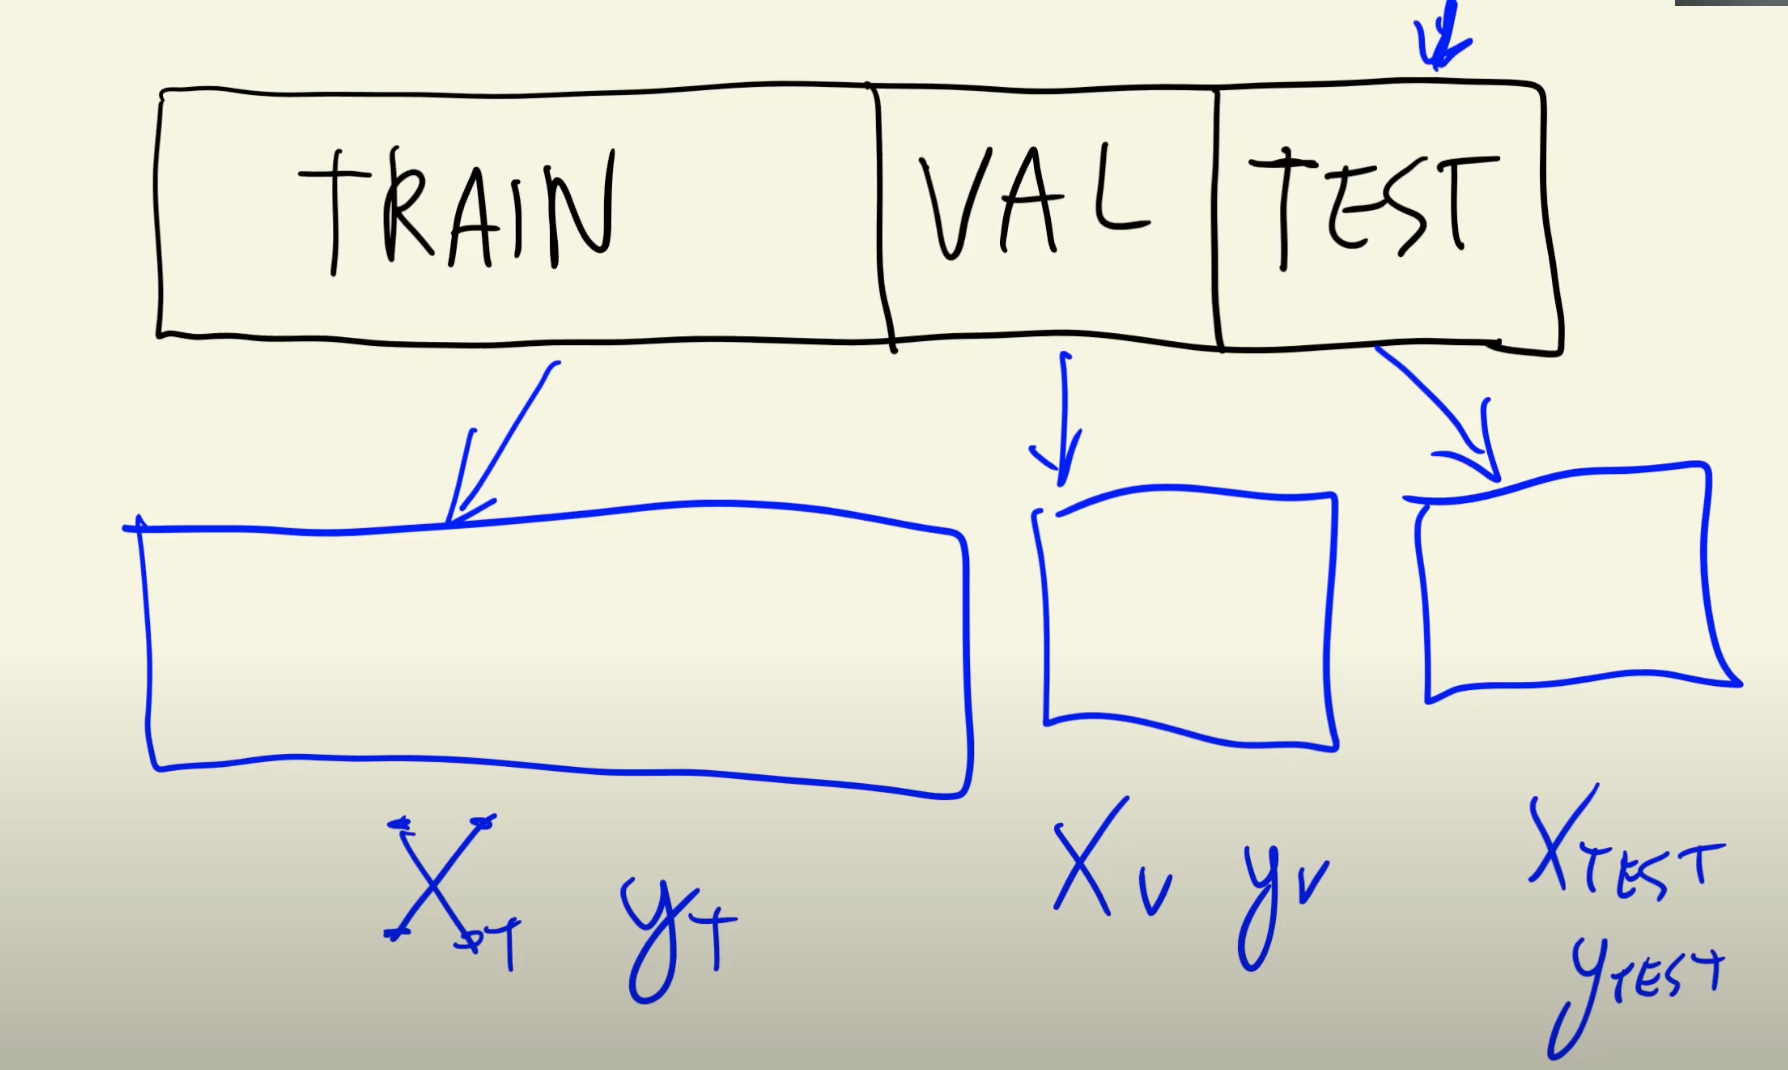 TRAIN VAL TEST
X_T y_T X_V y_V X_TEST
y_TEST